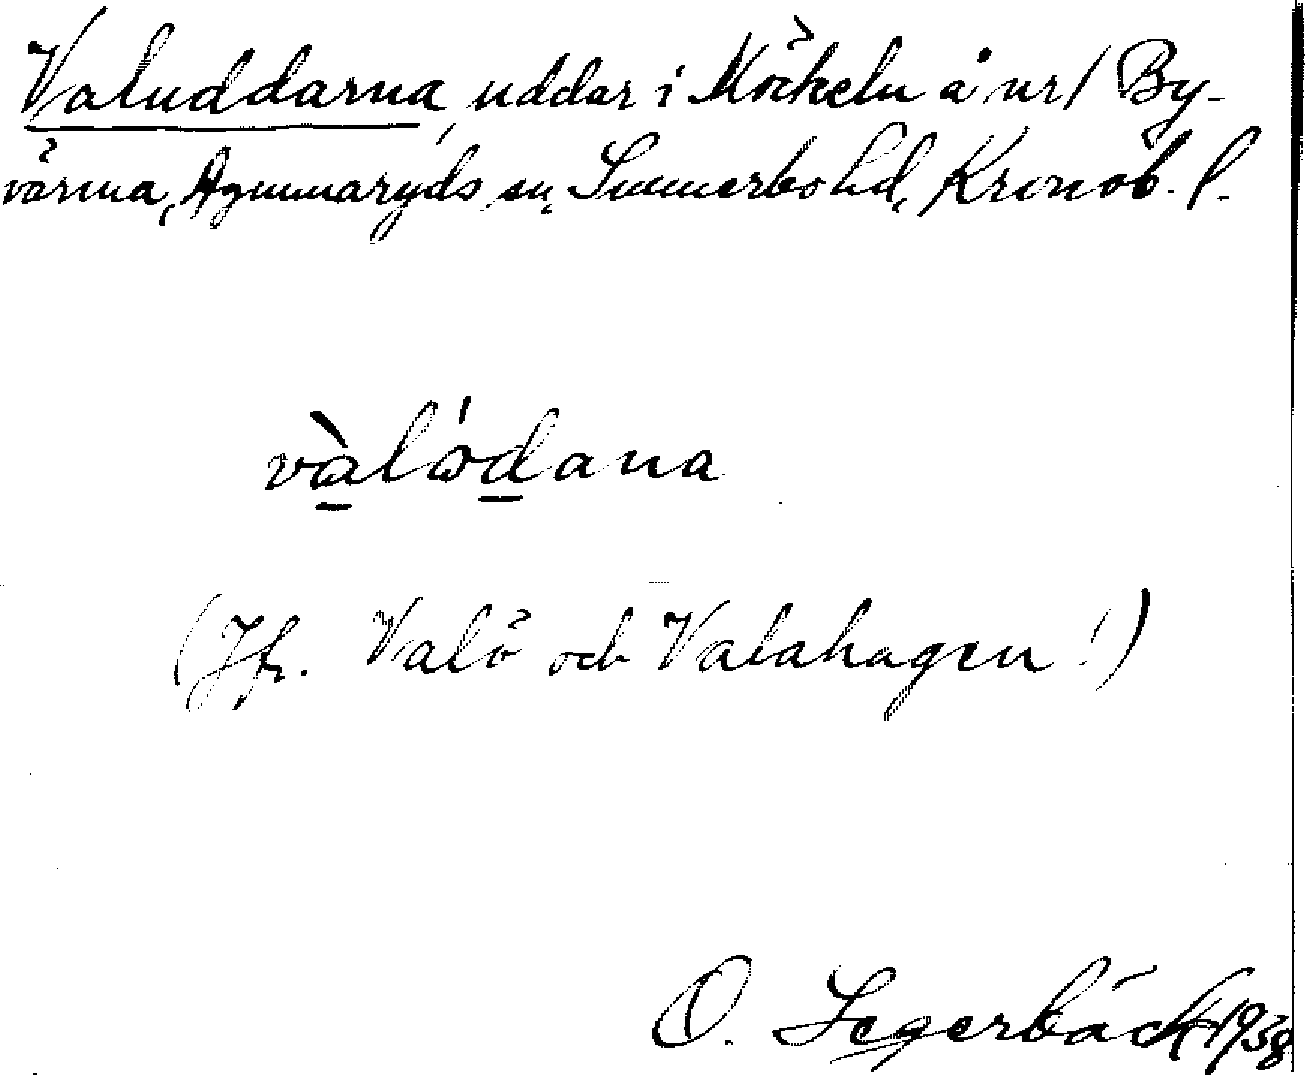 Valuddarna, uddar i Möckeln å nr 1 By-
värma, Agunnaryds sn, Sunnerbo hd, Kronob. l.
vàlódana
(Jfr. Valö och Valahagen!)
O. Segerbäck 1938